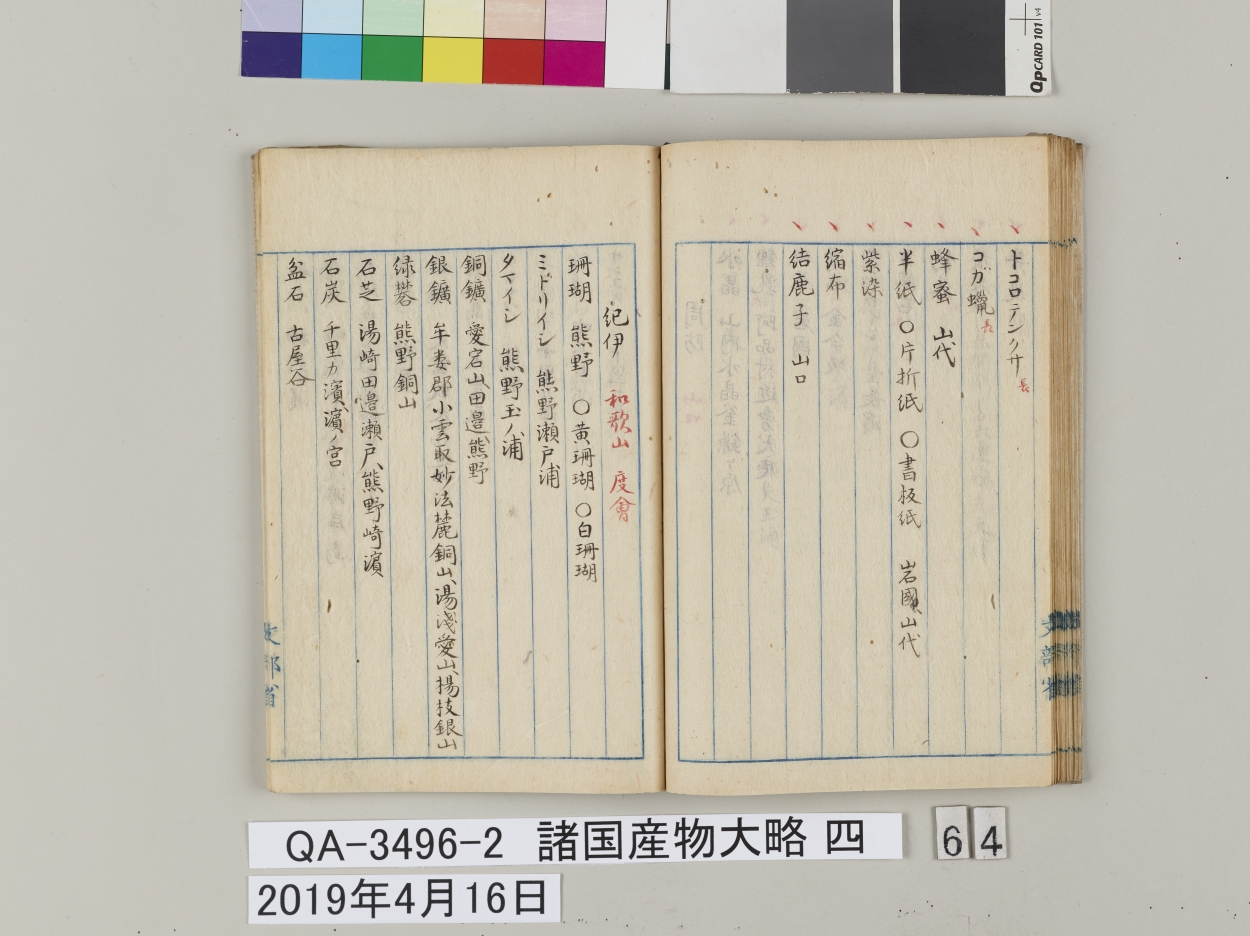 QpCARD 101 v4
トコロテンノサ 長
コガ蠟 長
蜂蜜 山代
半紙 〇片折紙 〇書板紙 岩國、山代
紫染
縮布
結鹿子 山口
紀伊 和歌山 度會
珊瑚 熊野 〇黄珊瑚 〇白珊瑚
ミドリイシ 熊野瀬戸浦
タマイシ 熊野玉ノ浦
銅鑛 愛宕山、田邉、熊野
銀鑛 牟婁郡小雲取妙法麓銅山、湯浅愛山、揚枝銀山
緑礬 熊野銅山
石芝 湯崎田邉瀬戸、熊野崎濵
石炭 千里カ濵、濵ノ宮
盆石 古屋谷
文部省
文部省
QA-3496-2 諸国産物大略 四
64
2019年4月16日